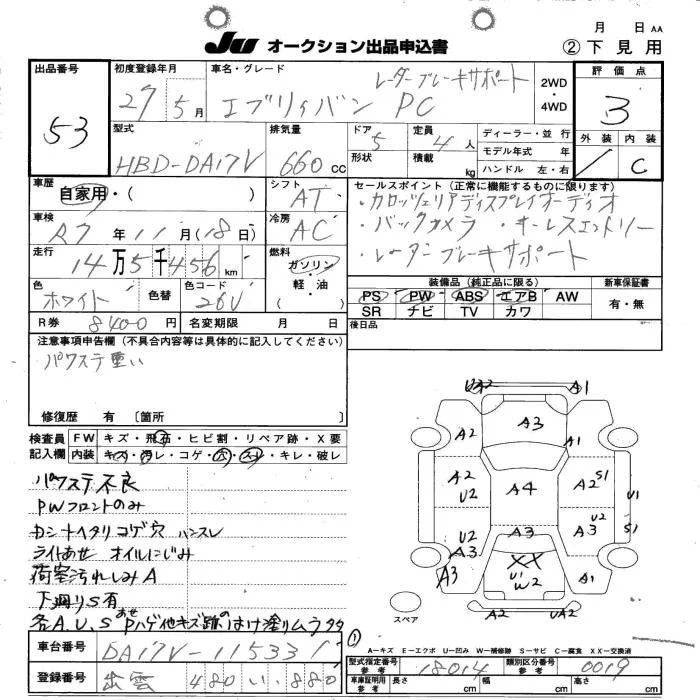 月 日 AA
JU オークション出品申込書
② 下見用
出品番号
53
初度登録年月
27年 5月
車名・グレード
レーダーブレーキサポート
エブリィバン PC
2WD・4WD
評価点
3
外装 内装
C
型式
HBD-DA17V
排気量
660cc
ドア
5
形状
定員
4人
積載 kg
ディーラー・並行
モデル年式 年
ハンドル 左・右
車歴
自家用・( )
シフト
AT
車検
R7年11月(18日)
冷房
AC
走行
14万5千456km
燃料
ガソリン・軽・油
( )
色
ホワイト
色替
色コード
26U
R券 8400円
名変期限 月 日
セールスポイント(正常に機能するものに限ります)
・カロッツェリアディスプレイオーディオ
・バックカメラ ・キーレスエントリー
・レーダーブレーキサポート
装備品(純正品に限る)
新車保証書
PS PW ABS エアB AW
SR チビ TV カワ
有・無
後日品
注意事項申告欄(不具合内容等は具体的に記入してください)
パワステ重い
修復歴 有 〔箇所 〕
検査員記入欄
FW キズ・飛石・ヒビ割・リペア跡・X要
内装 キズ・汚レ・コゲ・穴・スレ・キレ・破レ
パワステ不良
PWフロントのみ
カントヘタリコゲ穴 ハンスレ
ライトあせ オイルにじみ
荷室汚れしみA
下廻りS有
各A.U.S あせPハゲ他キズ跡のはけ塗りムラタタ
UA2 A1
A2 A3 A1
A2 U2 A4 A2 S1
U1
S1
U2 A3 A3 U2 A3
A3 XX U1 W2 A1
A2 UA2
スペア
①
A-キズ E-エクボ U-凹み W-補修跡 S-サビ C-腐食 XX-交換済
車台番号
DA17V-115331
登録番号
出雲 480 い 880
型式指定番号 参考
18014
類別区分番号 参考
0019
車庫証明用 参考
長さ cm 幅 cm 高さ cm